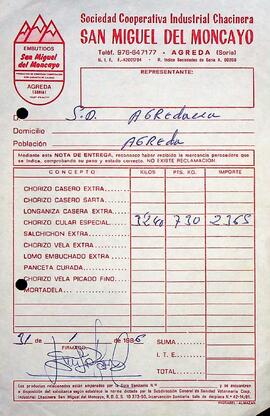 Sociedad Cooperativa Industrial Chacinera
SAN MIGUEL DEL MONCAYO
Teléf. 976-647177 - AGREDA (Soria)
EMBUTIDOS
San Miguel
del Moncayo
AGREDA
(SORIA)
REPRESENTANTE:
D. S.D. AGREDANA
Domicilio
Población AGREDA
Mediante esta NOTA DE ENTREGA, reconozco haber recibido la mercancía percedera que
se indica, comprobando su peso y estado correcto. NO EXISTE RECLAMACION
CONCEPTO KILOS PTS. KG. IMPORTE
CHORIZO CASERO EXTRA
CHORIZO CASERO SARTA
LONGANIZA CASERA EXTRA
CHORIZO CULAR ESPECIAL 3240 730 2365
SALCHICHON EXTRA
CHORIZO VELA EXTRA
LOMO EMBUCHADO EXTRA
PANCETA CURADA
CHORIZO VELA PICADO FINO
MORTADELA
31 / 1 / de 1986 SUMA
FIRMADO
I. T. E.
TOTAL
Los productos relacionados están amparados por la Guía Sanitaria N.º y se encuentran a
disposición del solicitante según establece la norma dictada por la Subdirección General de Sanidad Veterinaria Coop.
Industrial Chacinera San Miguel del Moncayo, R.D.G.S. 10 373-SO, inscripción Universal. Sirve salida depósito N.º 42-14/81.